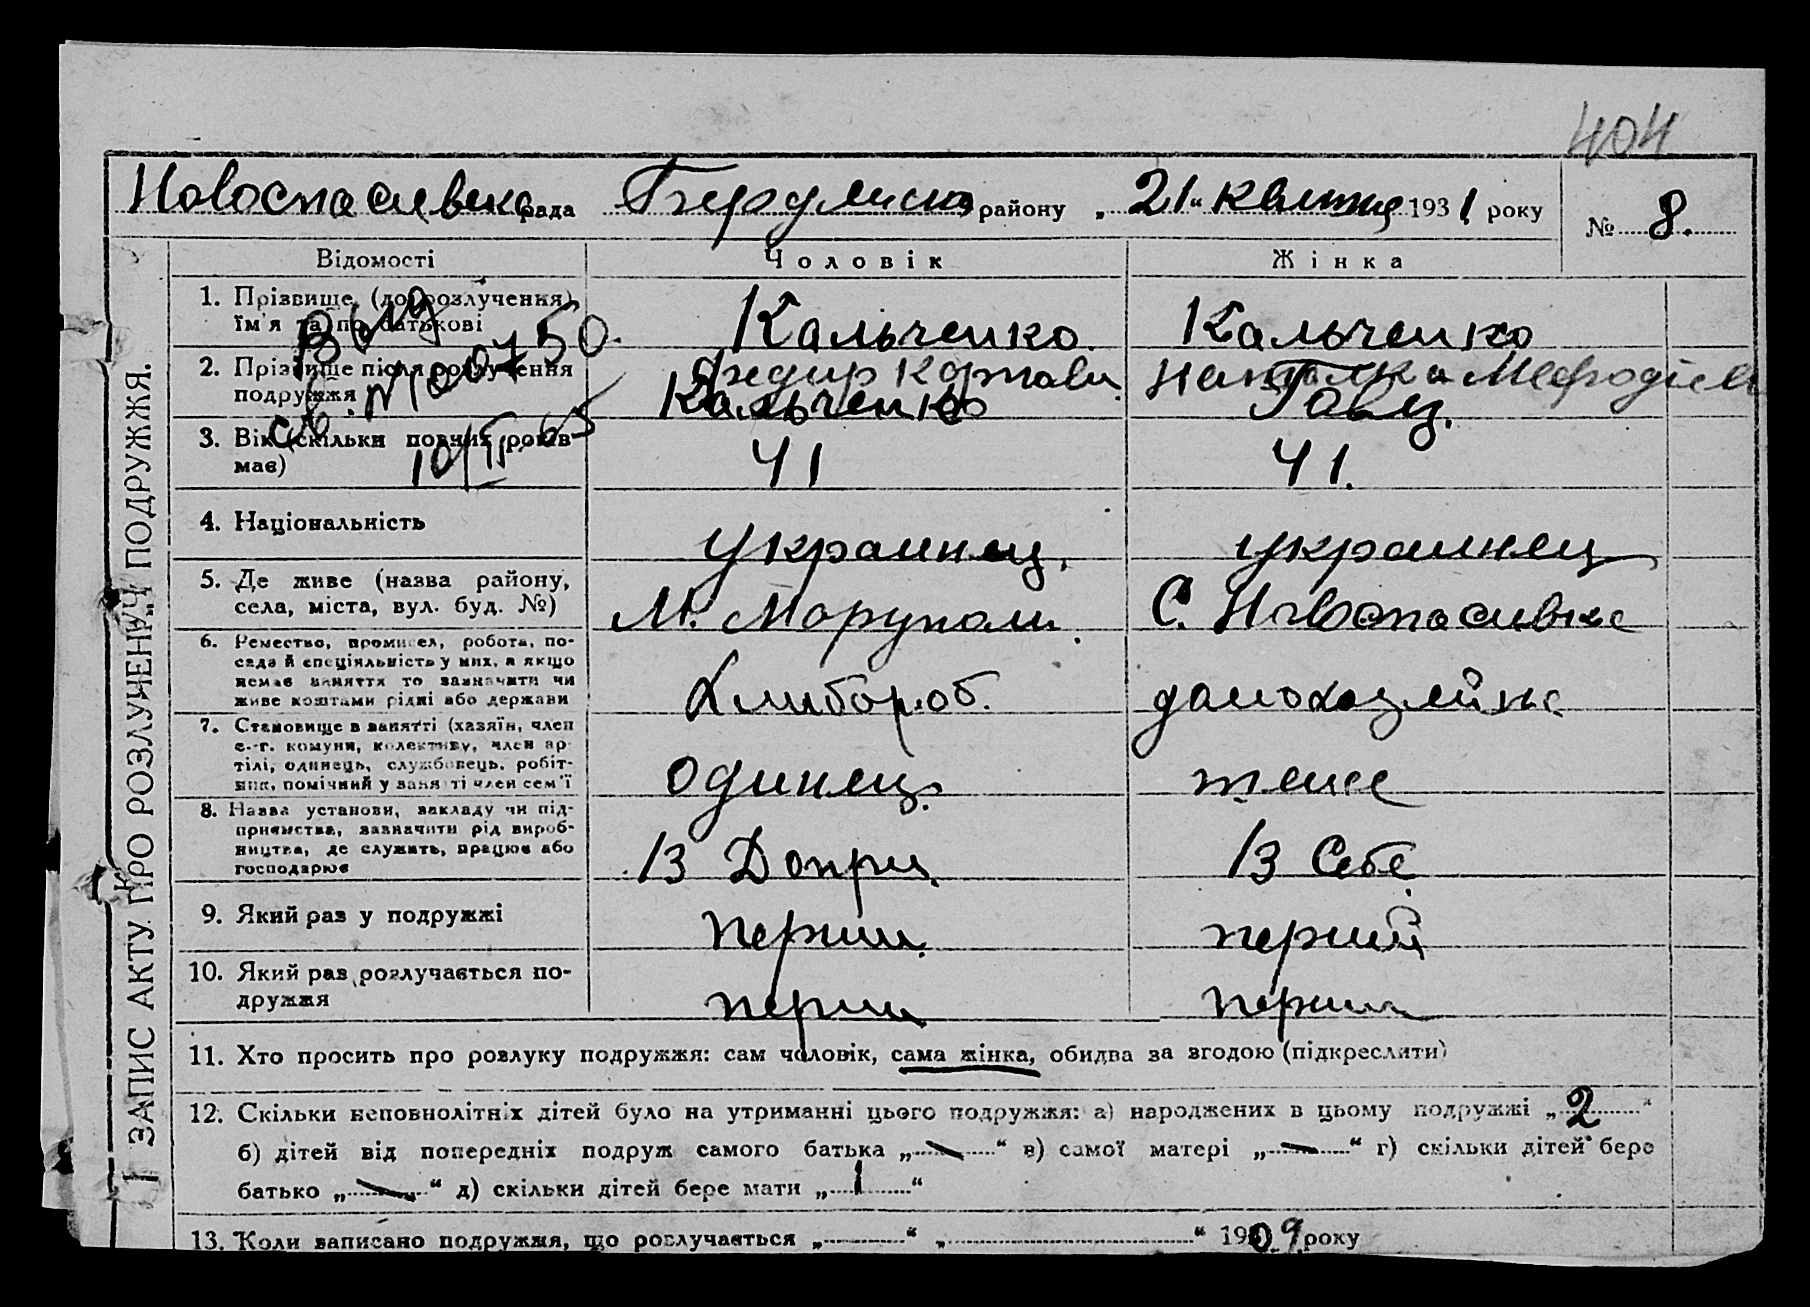 404
Новоспасивска рада Бердянск району „21“ квитня 1931 року № 8.
ЗАПИС АКТУ ПРО РОЗЛУЧЕННЯ ПОДРУЖЖЯ.
Відомості Чоловік Жінка
1. Прізвище (до розлучення) ім'я та по батькові Кальченко. Федир Кернови Кальченко Наталка Мефодіев
Выд св. №007150. 10/IV. 65
2. Прізвище після розлучення подружжя Кальченко Гавц.
3. Вік (скільки повних років має) 41 41.
4. Національність украинец. украинец
5. Де живе (назва району, села, міста, вул. буд. №) М. Марупали. С. Новоспасивка
6. Ремество, промисел, робота, посада й спеціяльність у них, а якщо немає заняття то зазначити чи живе коштами рідні або держави Хлибороб. домохазяйка
7. Становище в занятті (хазяїн, член с.-г. комуни, колективу, член артілі, одинець, службовець, робітник, помічний у занятті член сем'ї одинец. теже
8. Назва установи, закладу чи підприємства, зазначити рід виробництва, де служить, працює або господарює Із Допри. Із Себе
9. Який раз у подружжі перший. перший
10. Який раз розлучається подружжя перший перший
11. Хто просить про розлуку подружжя: сам чоловік, сама жінка, обидва за згодою (підкреслити)
12. Скільки неповнолітніх дітей було на утриманні цього подружжя: а) народжених в цьому подружжі „2“
б) дітей від попередніх подруж самого батька „—“ в) самої матері „—“ г) скільки дітей бере
батько „—“ д) скільки дітей бере мати „1“
13. Коли записано подружжя, що розлучається „ “ „ “ 1909 року